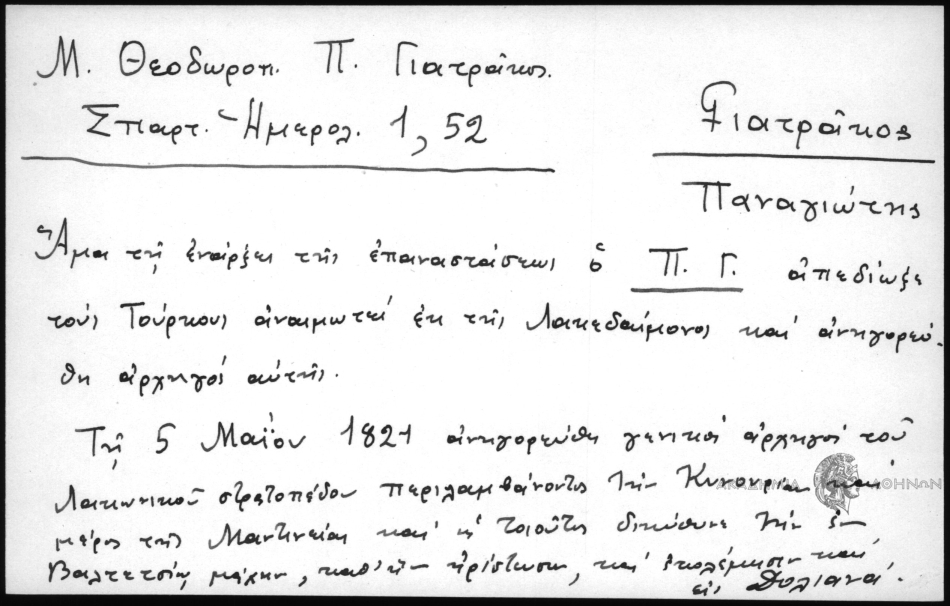 Μ. Θεοδωροπ. Π. Γιατράκος.
Σπαρτ. Ἡμερολ. 1, 52
Γιατράκος
Παναγιώτης
Ἅμα τῇ ἐνάρξει τῆς ἐπαναστάσεως ὁ Π. Γ. ἀπεδίωξε
τοὺς Τούρκους ἀναιμωτεὶ ἐκ τῆς Λακεδαίμονος καὶ ἀνηγορεύ-
θη ἀρχηγὸς αὐτῆς.
Τῇ 5 Μαΐου 1821 ἀνηγορεύθη γενικὸς ἀρχηγὸς τοῦ
Λακωνικοῦ στρατοπέδου περιλαμβάνοντος τὴν Κυνουρίαν καὶ
μέρος τῆς Μαντινείας καὶ ὡς τοιοῦτος διηύθυνε τὴν ἐν
Βαλτετσίῳ μάχην, καθ' ἣν ἠρίστευσεν, καὶ ἐπολέμησεν καὶ
εἰς Δολιανά.
ΑΚΑΔΗΜΙΑ ΑΘΗΝΩΝ